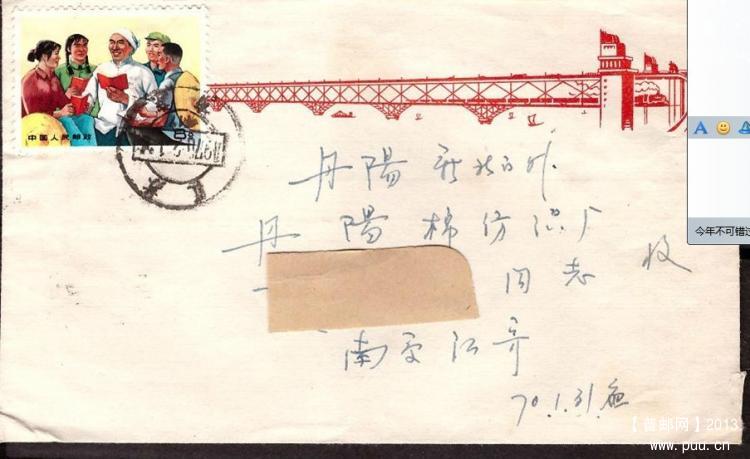 中国人民邮政
8
丹陽 北门外
丹陽棉纺织厂
同志 收
南京江寄
70.1.31.夜
A
今年不可错过
【首邮网】2013
www.puu.cn